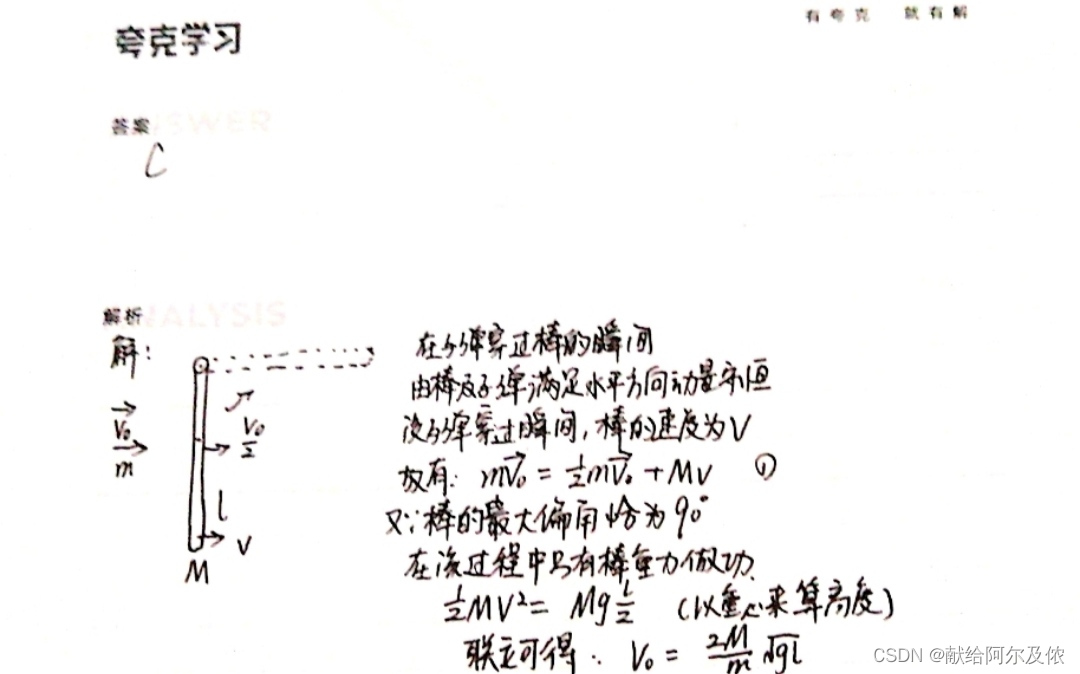 有夸克 就有解
夸克学习
答案
ANSWER
C
解析
ANALYSIS
解:
在子弹穿过棒的瞬间
由棒及子弹满足水平方向动量守恒
设子弹穿过瞬间,棒的速度为V
故有: m\vec{v_0} = \frac{1}{2}m\vec{v_0} + Mv ①
又∵棒的最大偏角恰为90°
在该过程中只有棒重力做功
\frac{1}{2}MV^2 = Mg\frac{l}{2} (以重心来算高度)
联立可得: V_0 = \frac{2M}{m}\sqrt{gl}
\vec{v_0}
m
\frac{v_0}{2}
l
v
M
CSDN @献给阿尔及侬